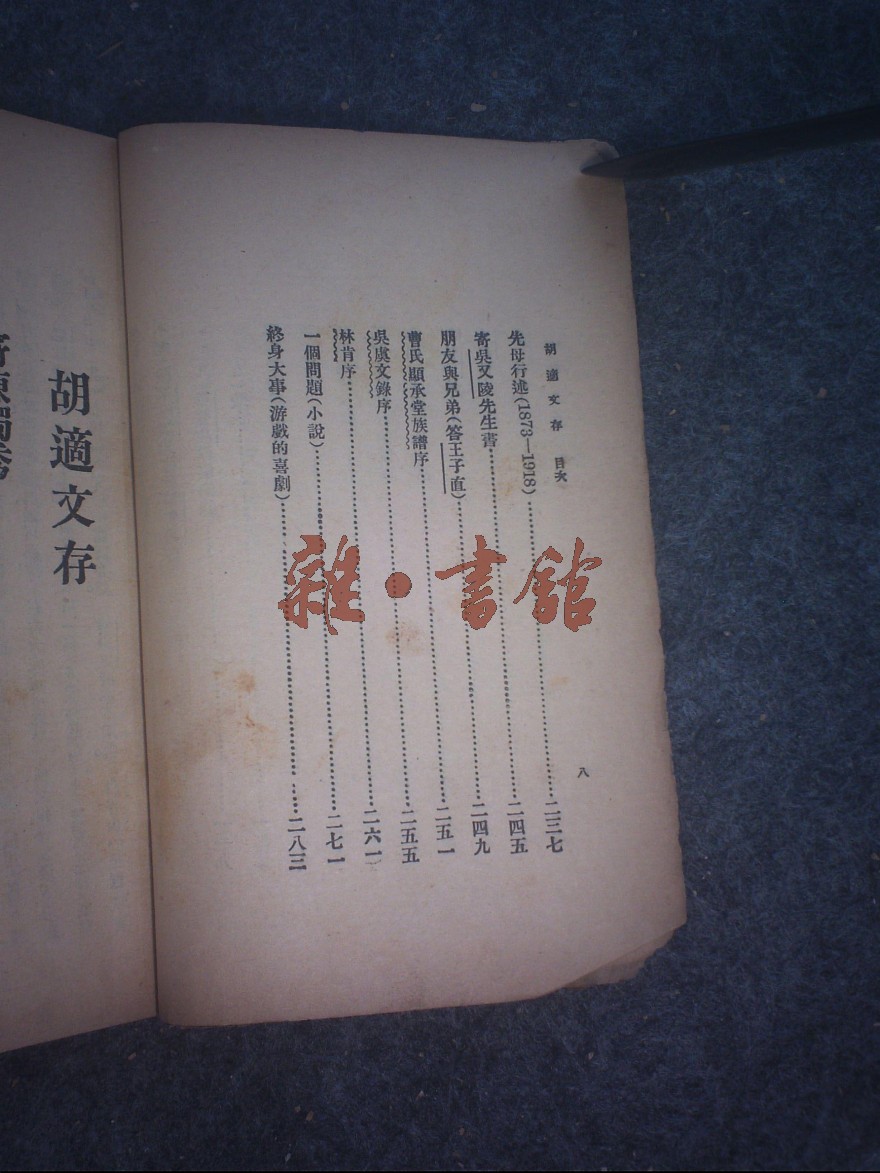 胡適文存 目次 八
先母行述(1873—1918)……二三七
寄吳又陵先生書……二四五
朋友與兄弟(答王子直)……二四九
曹氏顯承堂族譜序……二五一
吳虞文錄序……二五五
林肯序……二六一
一個問題(小說)……二七一
終身大事(游戲的喜劇)……二八三
胡適文存
雜·書館